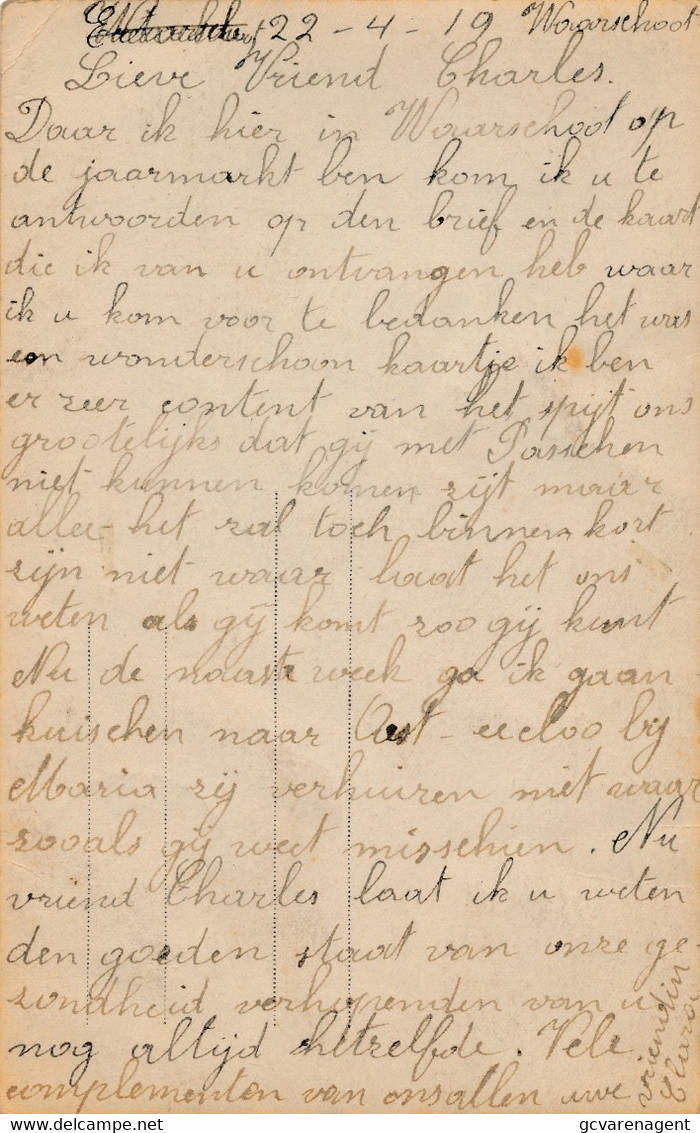 22 - 4 - 19 Waarschoot
Lieve Vriend Charles.
Daar ik hier in Waarschoot op
de jaarmarkt ben kom ik u te
antwoorden op den brief en de kaart
die ik van u ontvangen heb waar
ik u kom voor te bedanken het was
een wonderschoon kaartje ik ben
er zeer content van het spijt ons
grootelijks dat gij met Passchen
niet kunnen komen zijt maar
allee het zal toch binnen kort
zijn niet waar laat het ons
weten als gij komt zoo gij kunt
Nu de naaste week ga ik gaan
kuischen naar Oost-eecloo bij
Maria zij verhuizen niet waar
zooals gij weet misschien. Nu
vriend Charles laat ik u weten
den goeden staat van onze ge-
zondheid verhopenden van u
nog altijd hetzelfde. Vele
complementen van onsallen uwe
vriendin
gcvarenagent